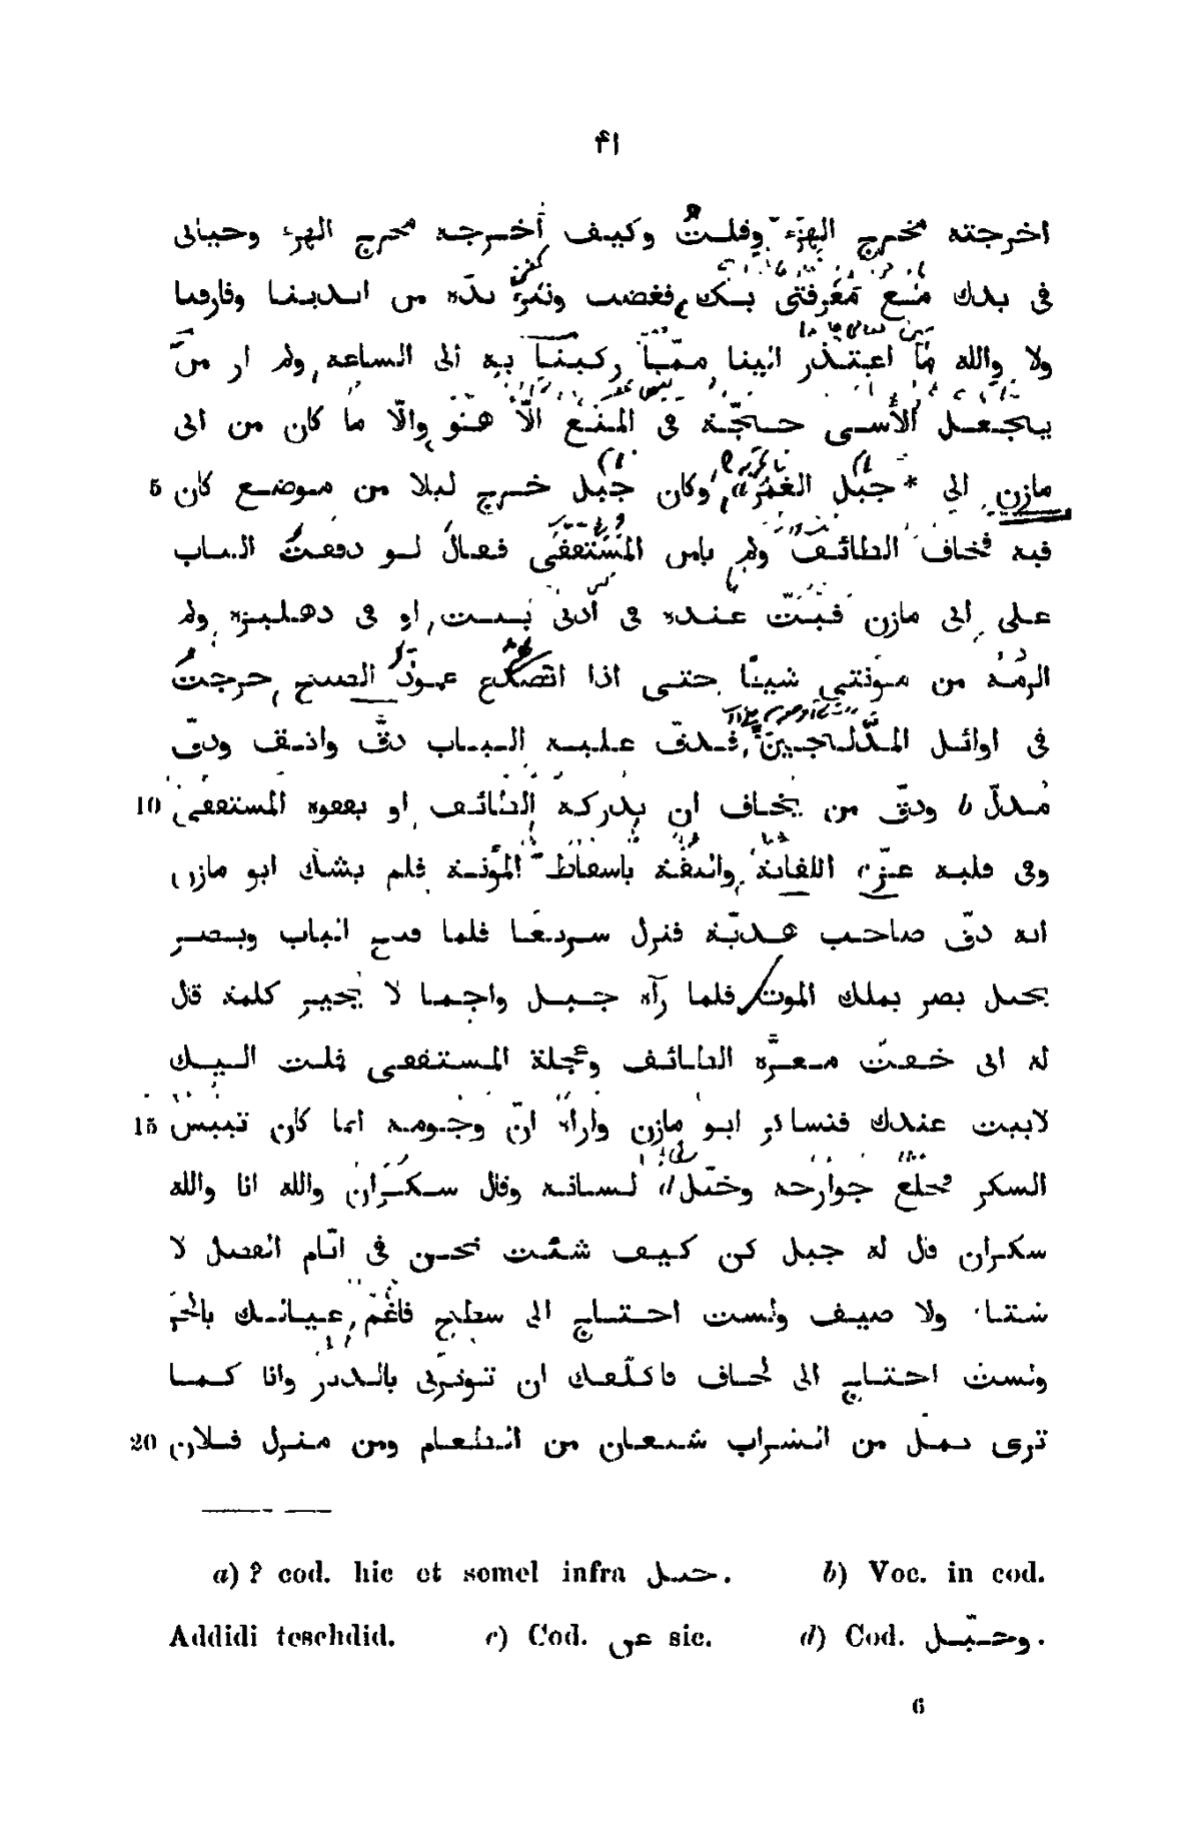 ۴۱
اخرجته مخرج الهزء وقلتُ وكيف أخرجه مخرج الهزء وحياتى
فى يدك مع معرفتى بك فغضب ونتر يده من ايدينا وفارقنا
ولا والله ما اعتذر الينا ممّا ركبنا به الى الساعة ولم ار من
يجعل الأسى حجّة فى المنع الّا هو والّا ما كان من ابى
مازن الى * جبل الغمر a وكان جبل خرج ليلا من موضع كان 5
فيه فخاف الطائف ولم يأمن المستقفى فقال لو دققتُ الباب
على ابى مازن فبتّ عنده فى أدنى بيت او فى دهليزه ولم
الزمه من مؤنتى شيئًا حتى اذا انصدع عمود الصبح خرجتُ
فى اوائل المدّلجين فدقّ عليه الباب دقّ واثق ودقّ
مُدلّ b ودقّ من يخاف ان يدركه الطائف او يقفوه المستقفى 10
وفى قلبه عزّ c الكفاية والثقة باسقاط المؤنة فلم يشكّ ابو مازن
انه دقّ صاحب هديّة فنزل سريعًا فلما فتح الباب وبصر
بجبل بصر بملك الموت فلما رآه جبل واجما لا يحير كلمة قال
له انى خفت معرّة الطائف وعجلة المستقفى فملت اليك
لابيت عندك فتساكر ابو مازن واراه انّ وجومه انما كان بسبب 15
السكر فخلع جوارحه وخبّل d لسانه وقال سكران والله انا والله
سكران قال له جبل كن كيف شئت نحن فى ايّام الفصل لا
شتاء ولا صيف ولست احتاج الى سطح فاغمّ عيالك بالحرّ
ولست احتاج الى لحاف فاكلّفك ان تؤثرنى بالدثر وانا كما
ترى ثمل من الشراب شبعان من الطعام ومن منزل فلان 20
a) ? cod. hic et semel infra حبل. b) Voc. in cod.
Addidi teschdid. c) Cod. عن sic. d) Cod. وحبّل.
6